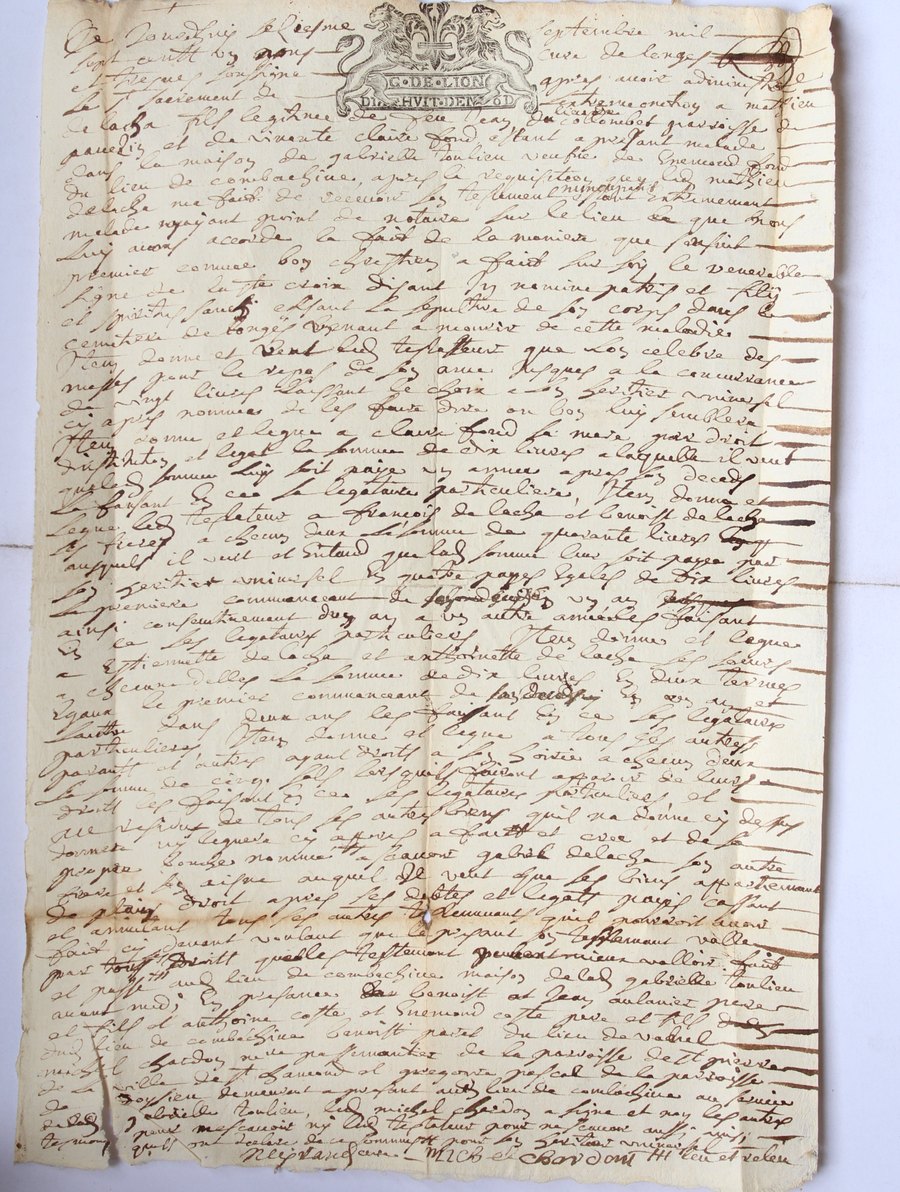 Ce Jourdhuy seiziesme septembre mil
sept cents un nous cure de longes
et tresves soussigne apres avoir administre
le st sacrement de lextremeonction a mathieu
G·DE·LION
DIX·HVIT·DEN
delacha fils legitime de feu Jean du collombet parroisse de
pavezin et de vivante claire fond estant a presant malade
dans la maison de gabrielle toulieu veufve de enemond fond
du lieu de combachine, apres la requisition que led mathieu
delacha ma fait de recevoir son testement nuncupatif estant extremement
malade nyayant point de notaire sur le lieu ce que nous
luy avons accorde la fait de la maniere que sensuit
premier comme bon chrestien a fait sur soy le venerable
signe de la ste croix disant In nomine patris et filij
et spiritus sancti elisant la sepulture de son corps dans le
cemetiere de longes venant a mourir de cette maladie
Item donne et veut led testateur que lon celebre des
messes pour le repos de son ame jusques a la concurrance
de vingt livres laissant le choix a son heritier universel
cy apres nomme de les faire dire ou bon luy semblera
Item donne et legue a claire fond sa mere par droit
dinstitution et legat la somme de dix livres a laquelle il veut
que lad somme luy soit paye un annee apres son deceds
la faisant en ce sa legataire particuliere, Item donne et
legue led testateur a francois delacha et benoist delacha
ses freres a checun deux la somme de quarante livres
ausquels il veut et entand que lad somme leur soit payee par
son heritier universel en quatre payes egales de dix livres
la premiere commenceant de un an
ainsi consentivement dun an a un autre les faisant
en ce ses legataires particuliers Item donne et legue
a Estiennette delacha et anthoinette delacha ses soeurs
a checune delles la somme de dix livres en deux termes
Egaux le premier commenceant de son deceds en un an et
lautre dans deux ans les faisant en ce ses legataires
particulieres Item donne et legue a tous ses autres
parants et autres ayant droits a son hoirie a checun deux
la somme de cinq sols lesquels fairont apparoir de leurs
droits les faisant en ce ses legataires particuliers et
au residue de tous ses autres biens quil na donne cy dessus
donnera ny leguera cy apres a fait et cree et de sa
propre bouche nomme a scavoir gabriel delacha son autre
frere et son aisne auquel il veut que ses biens appartiennent
de plain droit apres ses debtes et legats payes cassant
et annulant tous ses autres testemants quil pourroit avoir
fait cy devant voulant que le presant son testement valle
par tous droits que testement peuvent mieux valloir fait
et passe aud lieu de combachine maison de lad gabrielle toulieu
avant midi en presance de benoist et Jean aulanier pere
et fils et anthoine coste et Enemond coste pere et fils
dud lieu de combachine benoist paret du lieu de
michel chardon passemantier de la parroisse de st pierre
de la ville de st chamond et gregoire pascal de la parroisse
de doysieu demeurant a presant aud lieu de combechine au service
de lad gabrielle toulieu, led michel chardon a signe et non les autres
tesmoins pour ne scavoir ny led testateur pour ne scavoir aussi ainsi
quils ont declare de ce somme pour son heritier universel
Neyrand cure MICHEL chardon leu et releu